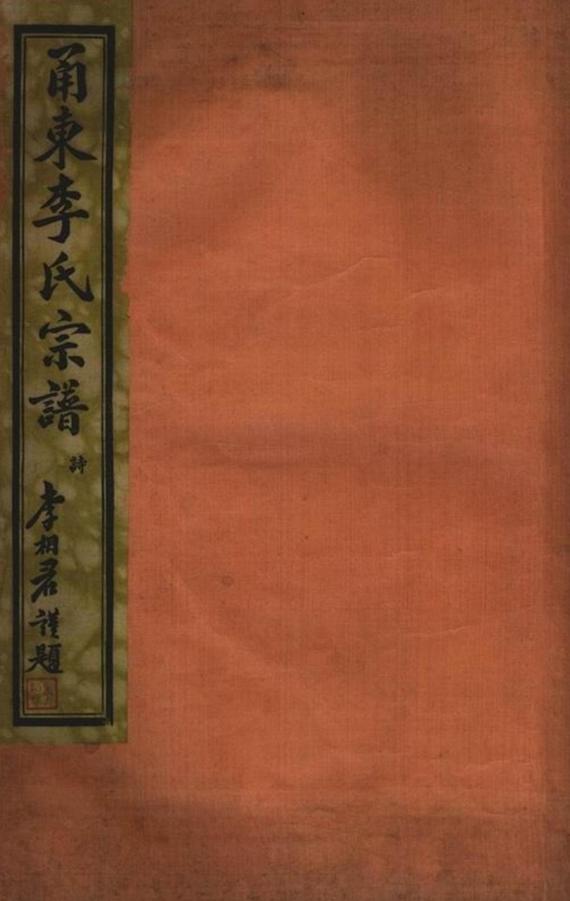 甬東李氏宗譜
詩
李相君謹題